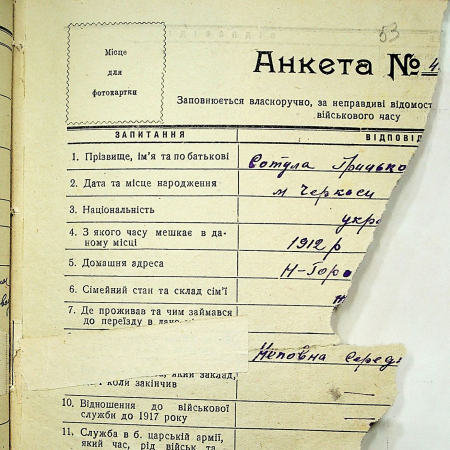 53
Місце
для
фотокартки
Анкета № 4
Заповнюється власноручно, за неправдиві відомост
військового часу
ЗАПИТАННЯ ВІДПОВІД
1. Прізвище, ім'я та по батькові Сотула Грицько
2. Дата та місце народження м Черкаси
3. Національність укра
4. З якого часу мешкає в да-
ному місці 1912 р
5. Домашня адреса Н-Горо
6. Сімейний стан та склад сім'ї
7. Де проживав та чим займався
до переїзду в дане
Неповна серед
який заклад,
і коли закінчив
10. Відношення до військової
служби до 1917 року
11. Служба в б. царській армії,
який час, рід військ та